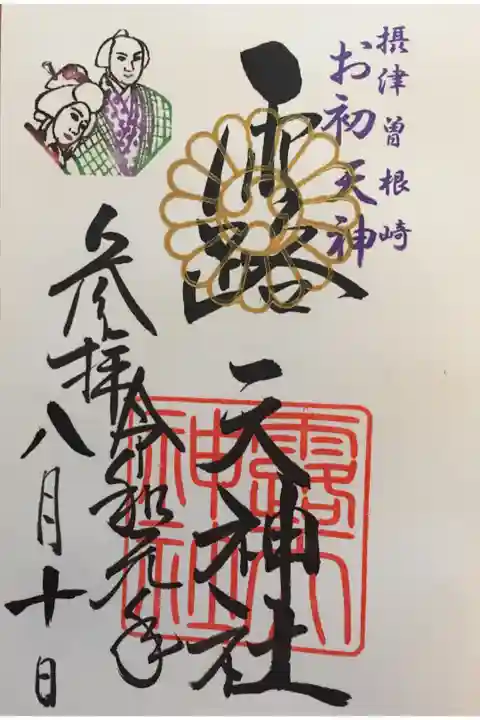 摂津曽根崎
お初天神
露
天神社
露天
神社
参拝
令和元年
八月十日